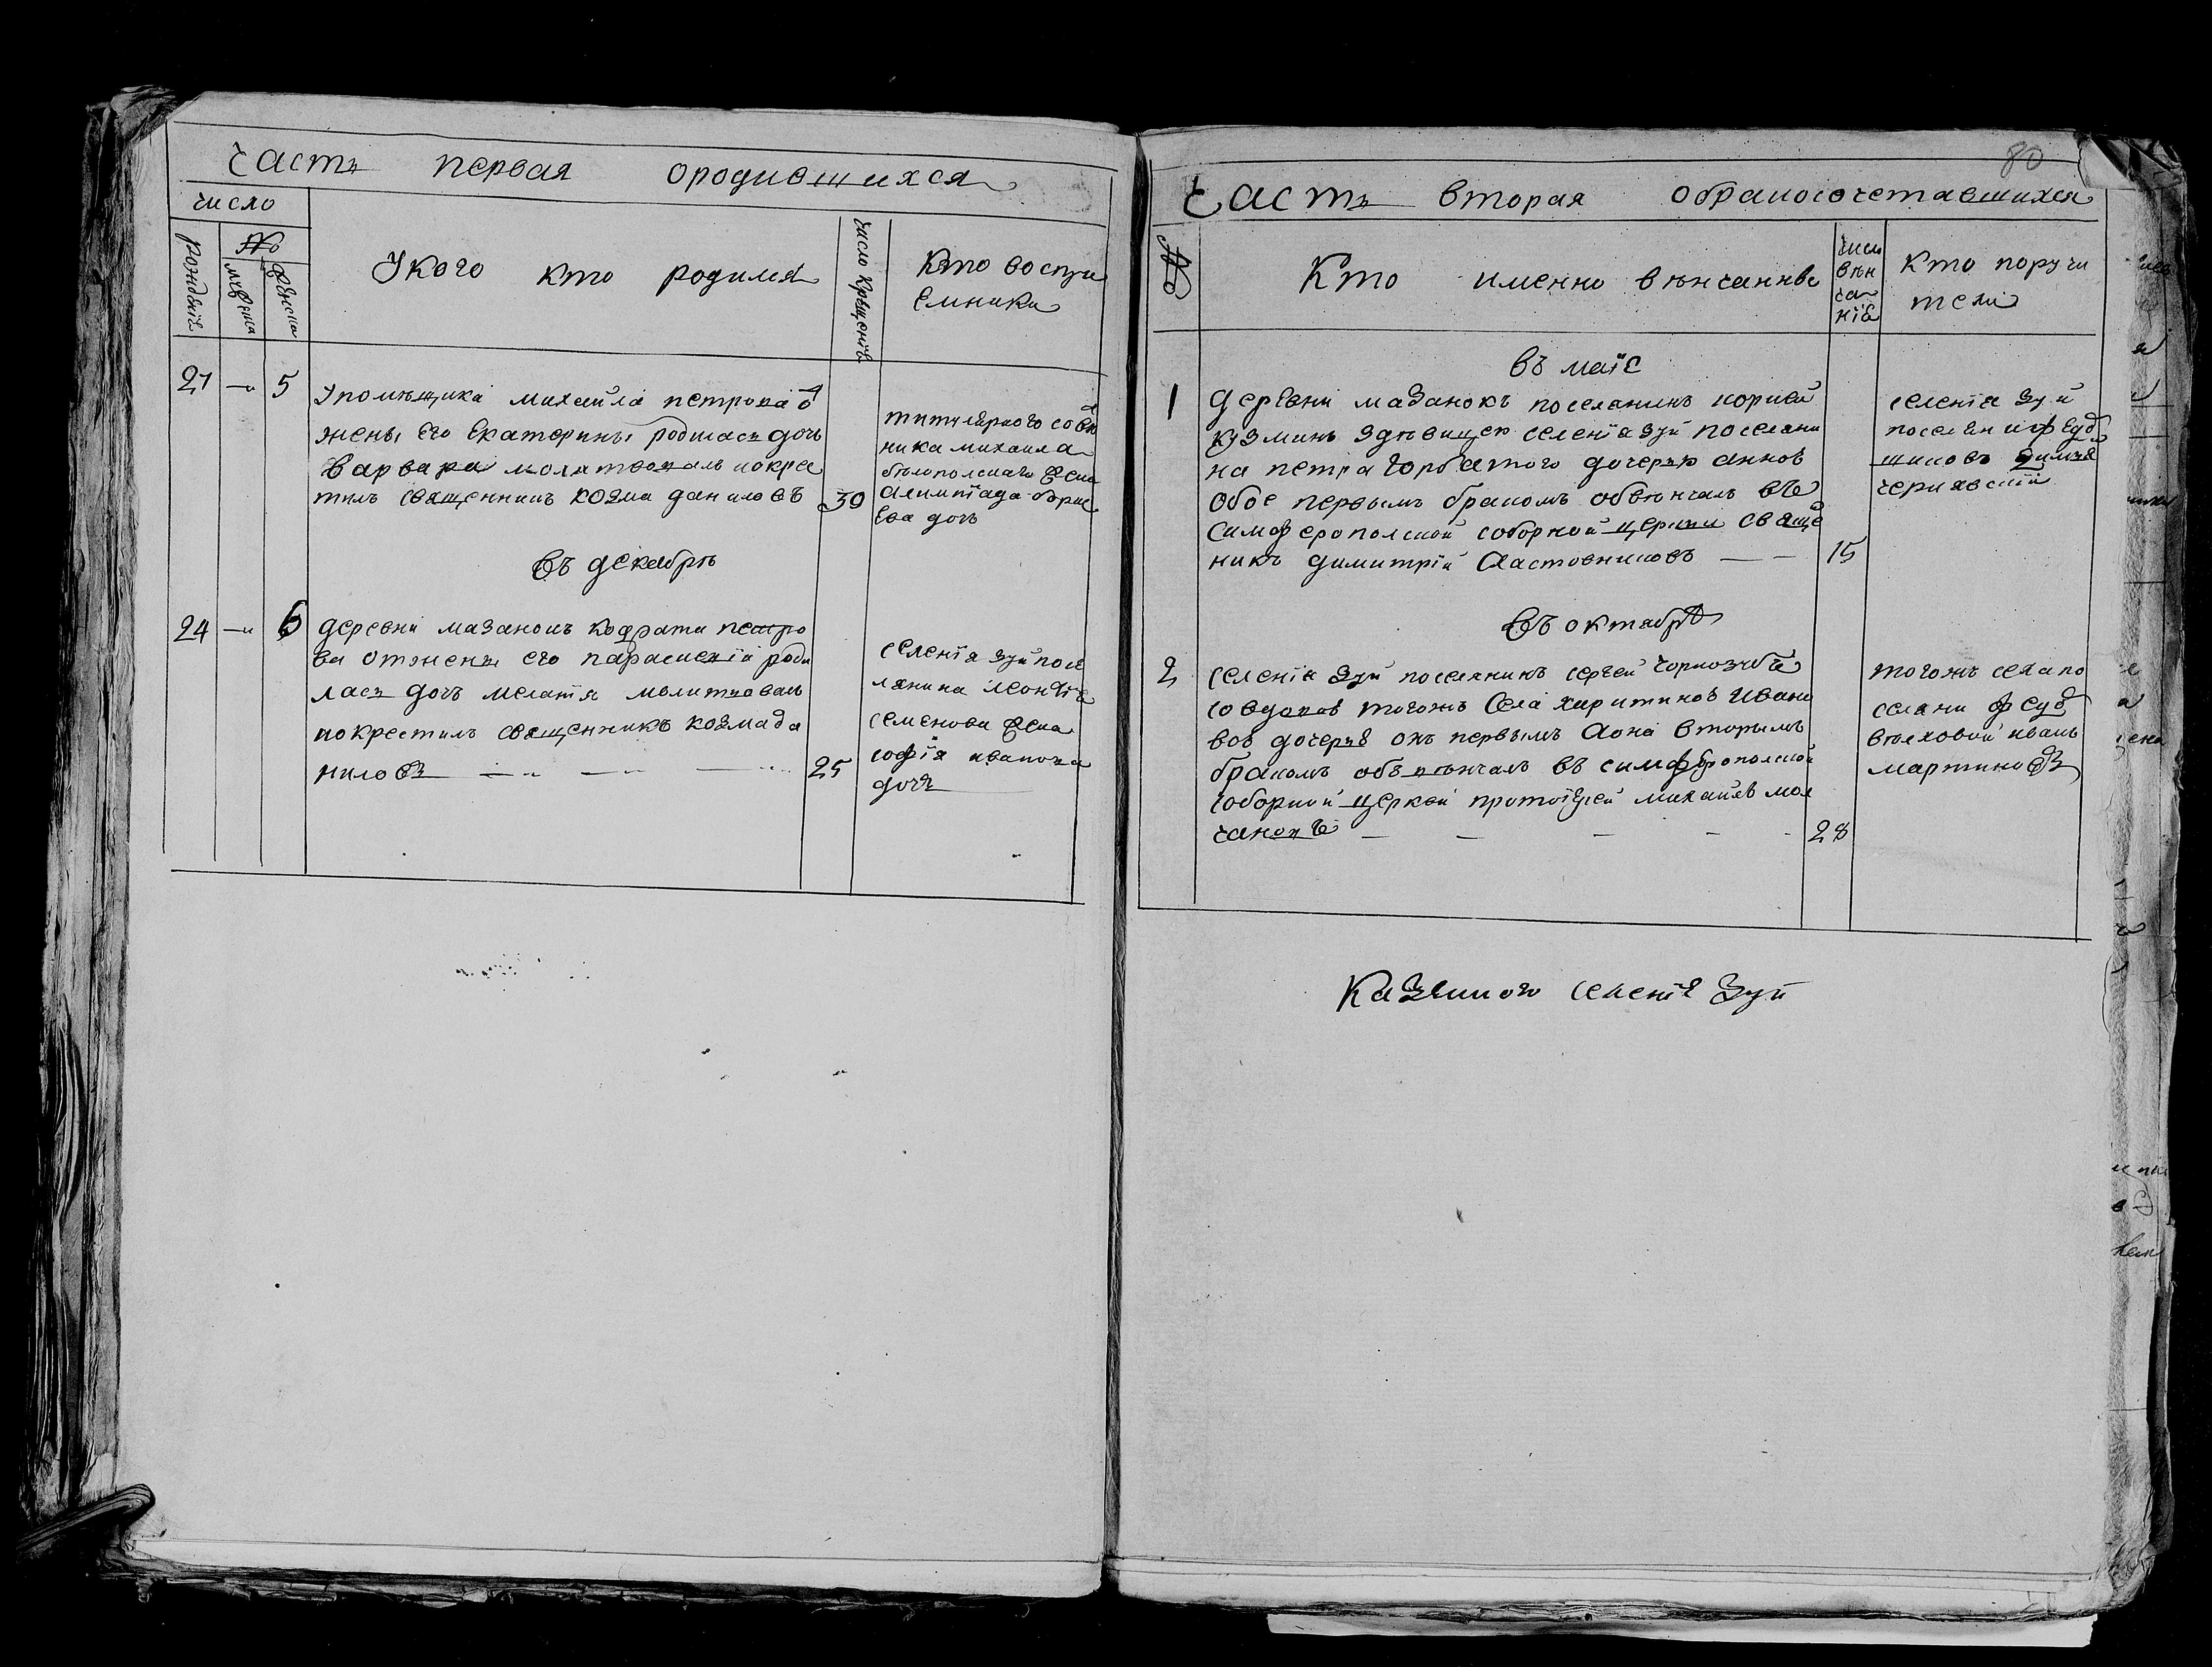 Часть первая ородившихся
число
рожденіе
№
мужеска
женска
Укого кто родился
число крещеніе
Кто воспри
емники
21 — 5
Упомѣщика михаила петрова о
жены его Екатерины родилась дочь
варвара молитвовалъ иокрес
тилъ священникъ козма даниловъ 30
титулярного совѣт
ника михаила
бѣлополскаго жена
Алимпіада
ева дочь
Въ декабрѣ
24 — 6
деревни мазанокъ кодрата петро
ва отжены его параскевіи роди
лась дочь меланія молитвовалъ
иокрестилъ священникъ козма да
ниловъ — — — 25
селенія зуи посе
лянина леонтіе
семенова жена
софія иванова
дочь
80
Часть вторая обракосочетавшихся
№
Кто именно вѣнчанные
число
вѣн
ча
ніе
Кто поручи
тели
въ маіе
1
деревни мазанокъ поселанинъ корней
кузминъ здѣвицею селенія зуй поселани
на петра горбатого дочерью анною
обое первымъ бракомъ обвѣнчалъ въ
симферополской соборной церкви свяще
никъ димитрій Ластовниковъ — — 15
селенія зуй
посел
чернявскій
въ октябрѣ
2
селенія зуй поселянинъ сергей
совдовою тогожъ села харитиною Ивано
вою дочерью онъ первымъ Аона вторымъ
бракомъ объвѣнчалъ въ симферополской
соборной церкви протоіерей михаилъ мол
чановъ — — — — 28
тогожъ села по
селяни феуд
вѣлховой иванъ
мартиновъ
Казенного селеніе Зуи